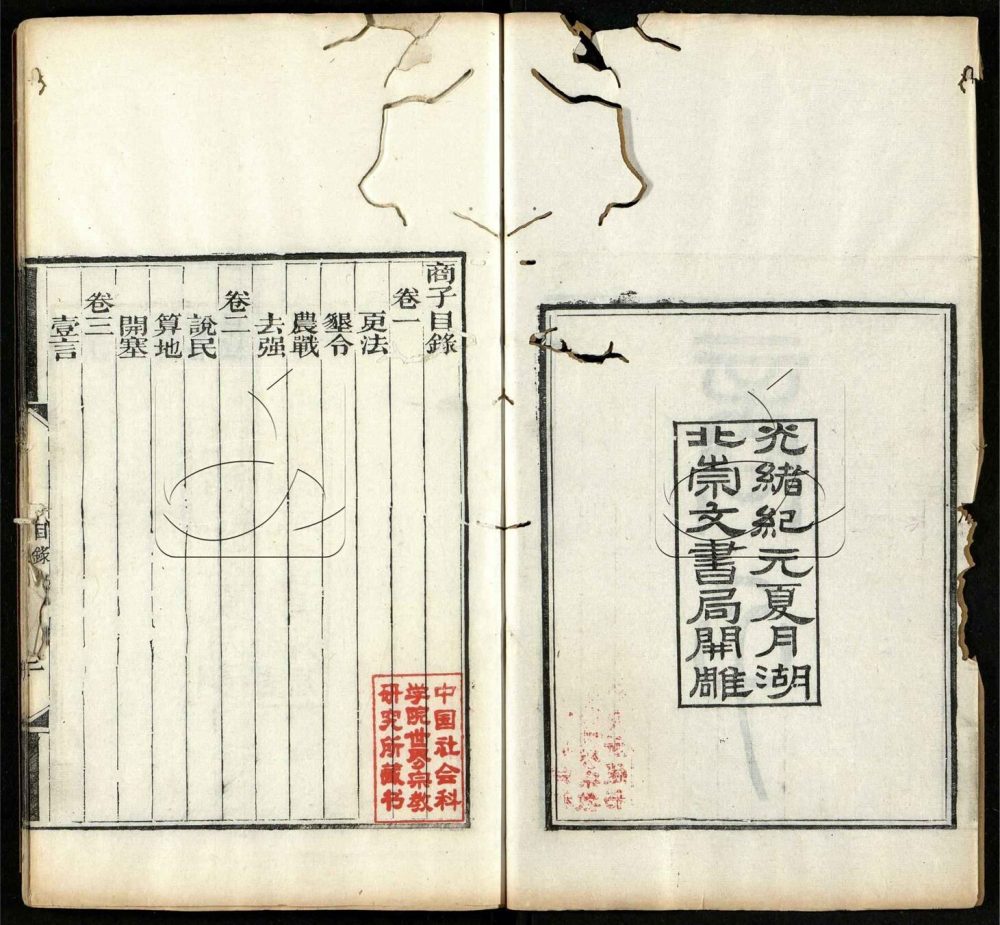 光緒紀元夏月湖
北崇文書局開雕
商子目錄
卷一
更法
墾令
農戰
去强
卷二
說民
算地
開塞
卷三
壹言
目錄
中国社会科
学院世界宗教
研究所藏书